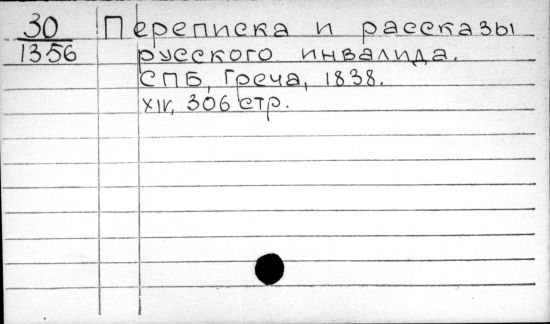 30 Переписка и рассказы
1356 русского инвалида.
СПБ, Греча, 1838.
XIV, 306 стр.